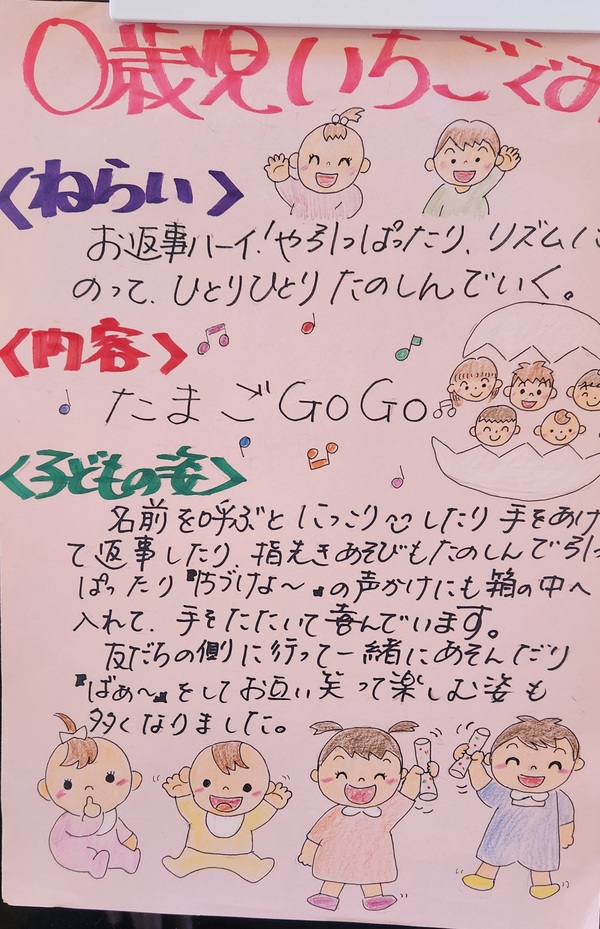 0歳児いちごぐみ
〈ねらい〉
お返事ハーイ!や引っぱったり、リズムに
のって、ひとりひとりたのしんでいく。
〈内容〉
たまごGoGo
〈子どもの姿〉
名前を呼ぶとにっこりしたり手をあげ
て返事したり、指先きあそびもたのしんで引っ
ぱったり『ちづけよ〜』の声かけにも箱の中へ
入れて、手をたたいて喜んでいます。
友だちの側に行って一緒にあそんだり
『ばぁ〜』をしてお互い笑って楽しむ姿も
多くなりました。